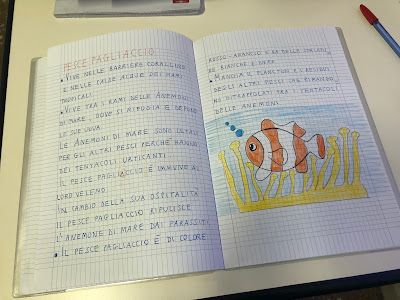 PESCE PAGLIACCIO
• VIVE NELLE BARRIERE CORALLINE
E NELLE CALDE ACQUE DEI MARI
TROPICALI.
• VIVE TRA I RAMI DELLE ANEMONI
DI MARE, DOVE SI RIFUGIA E DEPONE
LE SUE UOVA.
LE ANEMONI DI MARE SONO LETALI
PER GLI ALTRI PESCI PERCHÉ HANNO
DEI TENTACOLI URTICANTI.
IL PESCE PAGLIACCIO È IMMUNE AL
LORO VELENO.
IN CAMBIO DELLA SUA OSPITALITÀ
IL PESCE PAGLIACCIO RIPULISCE
L'ANEMONE DI MARE DAI PARASSITI.
• IL PESCE PAGLIACCIO È DI COLORE
ROSSO-ARANCIO E HA DELLE STRISCE
BIANCHE E NERE
• MANGIA IL PLANCTON E I RESIDUI
DEGLI ALTRI PESCI CHE RIMANGO_
NO INTRAPPOLATI TRA I TENTACOLI
DELLE ANEMONI